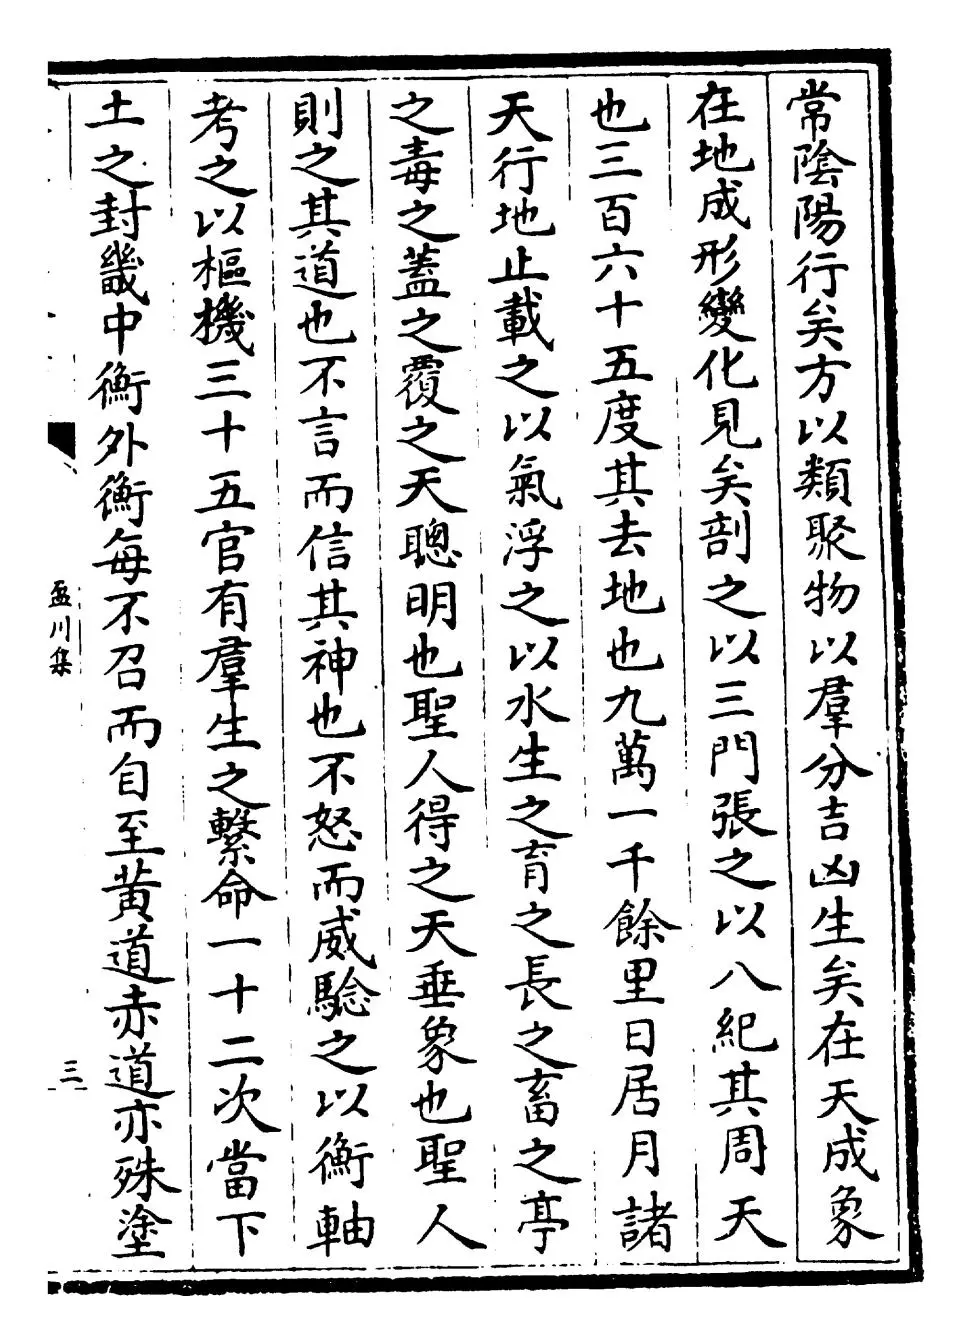 常陰陽行矣方以類聚物以羣分吉凶生矣在天成象
在地成形變化見矣剖之以三門張之以八紀其周天
也三百六十五度其去地也九萬一千餘里日居月諸
天行地止載之以氣浮之以水生之育之長之畜之亭
之毒之蓋之覆之天聰明也聖人得之天垂象也聖人
則之其道也不言而信其神也不怒而威驗之以衡軸
考之以樞機三十五官有羣生之繫命一十二次當下
土之封畿中衡外衡每不召而自至黃道赤道亦殊塗
盈川集
三